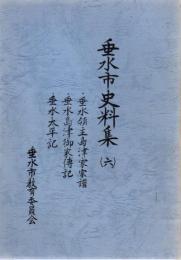 垂水市史料集
(六)
・垂水領主島津家家譜
・垂水島津御家傳記
・垂水太平記
垂水市教育委員会